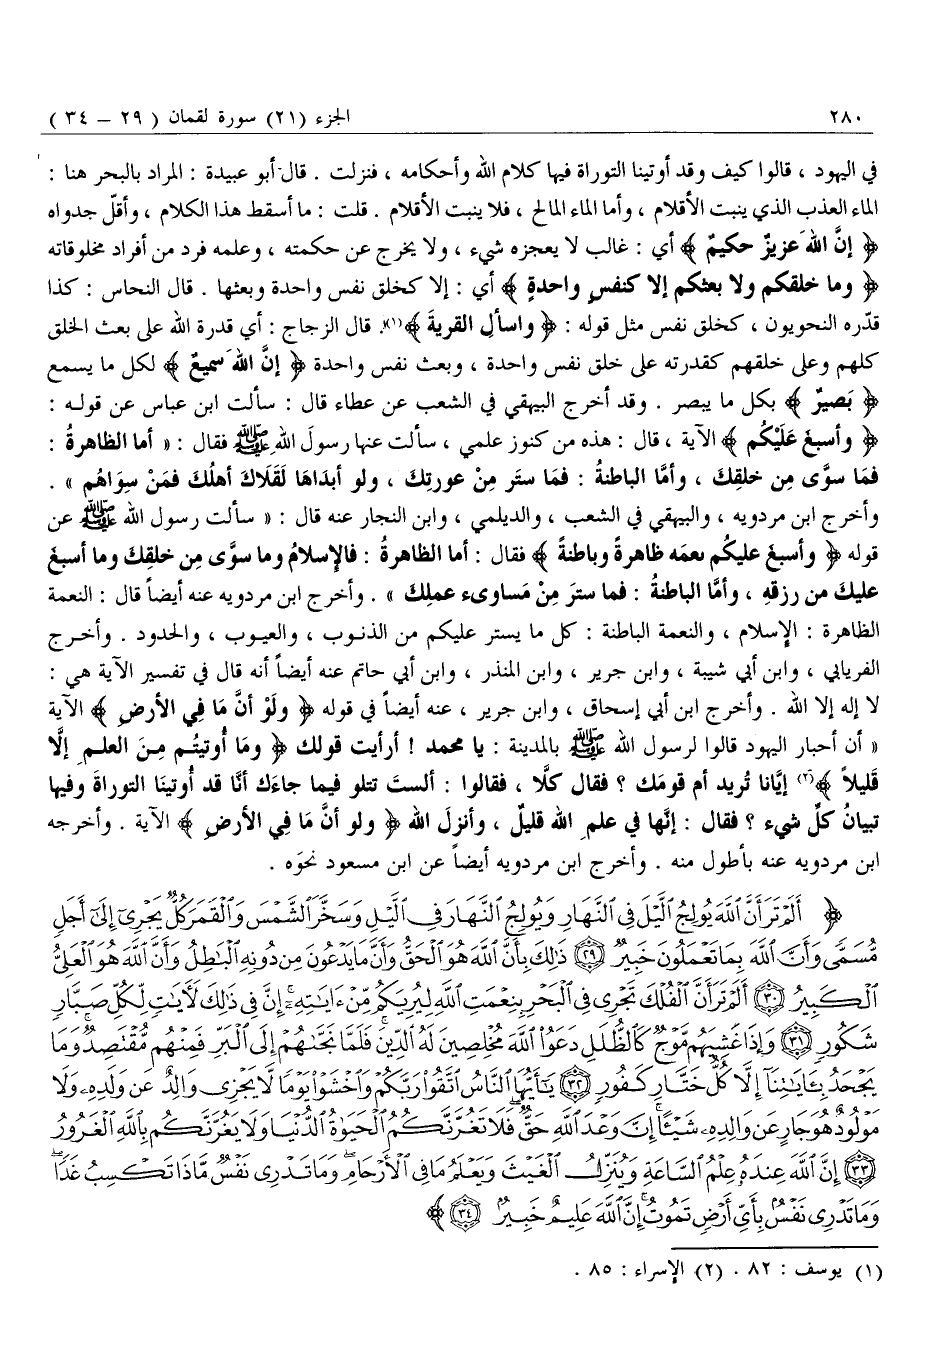 ٢٨٠ الجزء (٢١) سورة لقمان ( ٢٩ – ٣٤ )
في اليهود ، قالوا كيف وقد أوتينا التوراة فيها كلام الله وأحكامه ، فنزلت . قال أبو عبيدة : المراد بالبحر هنا :
الماء العذب الذي ينبت الأقلام ، وأما الماء المالح ، فلا ينبت الأقلام . قلت : ما أسقط هذا الكلام ، وأقلّ جدواه
﴿ إنَّ اللهَ عزيزٌ حكيمٌ ﴾ أي : غالب لا يعجزه شيء ، ولا يخرج عن حكمته ، وعلمه فرد من أفراد مخلوقاته
﴿ وما خلقكم ولا بعثكم إلا كنفسٍ واحدةٍ ﴾ أي : إلا كخلق نفس واحدة وبعثها . قال النحاس : كذا
قدّره النحويون ، كخلق نفس مثل قوله : ﴿ واسألِ القريةَ ﴾(١). قال الزجاج : أي قدرة الله على بعث الخلق
كلهم وعلى خلقهم كقدرته على خلق نفس واحدة ، وبعث نفس واحدة ﴿ إنَّ اللهَ سميعٌ ﴾ لكل ما يسمع
﴿ بَصيرٌ ﴾ بكل ما يبصر . وقد أخرج البيهقي في الشعب عن عطاء قال : سألت ابن عباس عن قوله :
﴿ وأسبغَ عَلَيْكُم ﴾ الآية ، قال : هذه من كنوز علمي ، سألت عنها رسولَ اللهِ ﷺ فقال : « أما الظاهرةُ :
فمَا سوَّى مِن خلقِكَ ، وأمَّا الباطنةُ : فمَا ستَر مِنْ عورتِكَ ، ولو أبدَاهَا لَقَلَاكَ أهلُكَ فمَنْ سِوَاهُم » .
وأخرج ابن مردويه ، والبيهقي في الشعب ، والديلمي ، وابن النجار عنه قال : « سألت رسول الله ﷺ عن
قوله ﴿ وأسبغَ عليكُم نعمَه ظاهرةً وباطنةً ﴾ فقال : أما الظاهرةُ : فالإسلامُ وما سوَّى مِن خلقِكَ وما أسبغَ
عليكَ من رزقِهِ ، وأمَّا الباطنةُ : فما سترَ مِنْ مَساوىءِ عملِكَ » . وأخرج ابن مردويه عنه أيضاً قال : النعمة
الظاهرة : الإسلام ، والنعمة الباطنة : كل ما يستر عليكم من الذنوب ، والعيوب ، والحدود . وأخرج
الفريابي ، وابن أبي شيبة ، وابن جرير ، وابن المنذر ، وابن أبي حاتم عنه أيضاً أنه قال في تفسير الآية هي :
لا إله إلا الله . وأخرج ابن أبي إسحاق ، وابن جرير ، عنه أيضاً في قوله ﴿ ولَوْ أنَّ مَا فِي الأرضِ ﴾ الآية
« أن أحبار اليهود قالوا لرسول الله ﷺ بالمدينة : يا محمد ! أرأيت قولك ﴿ ومَا أُوتيتُم مِنَ العلمِ إلَّا
قليلاً ﴾(٢) إيَّانا تُريد أم قومَك ؟ فقال كلَّا ، فقالوا : ألستَ تتلو فيما جاءَك أنَّا قد أُوتينَا التوراةَ وفيها
تبيانُ كلِّ شيء ؟ فقال : إنَّها في علمِ اللهِ قليلٌ ، وأنزلَ الله ﴿ ولو أنَّ مَا فِي الأرضِ ﴾ الآية . وأخرجه
ابن مردويه عنه بأطول منه . وأخرج ابن مردويه أيضاً عن ابن مسعود نحوَه .
﴿ أَلَمْ تَرَ أَنَّ ٱللَّهَ يُولِجُ ٱلَّيْلَ فِى ٱلنَّهَارِ وَيُولِجُ ٱلنَّهَارَ فِى ٱلَّيْلِ وَسَخَّرَ ٱلشَّمْسَ وَٱلْقَمَرَ كُلٌّ يَجْرِىٓ إِلَىٰٓ أَجَلٍ
مُّسَمًّى وَأَنَّ ٱللَّهَ بِمَا تَعْمَلُونَ خَبِيرٌ ﴿٢٩﴾ ذَٰلِكَ بِأَنَّ ٱللَّهَ هُوَ ٱلْحَقُّ وَأَنَّ مَا يَدْعُونَ مِن دُونِهِ ٱلْبَٰطِلُ وَأَنَّ ٱللَّهَ هُوَ ٱلْعَلِىُّ
ٱلْكَبِيرُ ﴿٣٠﴾ أَلَمْ تَرَ أَنَّ ٱلْفُلْكَ تَجْرِى فِى ٱلْبَحْرِ بِنِعْمَتِ ٱللَّهِ لِيُرِيَكُم مِّنْ ءَايَٰتِهِۦٓ إِنَّ فِى ذَٰلِكَ لَأٓيَٰتٍ لِّكُلِّ صَبَّارٍ
شَكُورٍ ﴿٣١﴾ وَإِذَا غَشِيَهُم مَّوْجٌ كَٱلظُّلَلِ دَعَوُا۟ ٱللَّهَ مُخْلِصِينَ لَهُ ٱلدِّينَ فَلَمَّا نَجَّىٰهُمْ إِلَى ٱلْبَرِّ فَمِنْهُم مُّقْتَصِدٌ وَمَا
يَجْحَدُ بِـَٔايَٰتِنَآ إِلَّا كُلُّ خَتَّارٍ كَفُورٍ ﴿٣٢﴾ يَٰٓأَيُّهَا ٱلنَّاسُ ٱتَّقُوا۟ رَبَّكُمْ وَٱخْشَوْا۟ يَوْمًا لَّا يَجْزِى وَالِدٌ عَن وَلَدِهِۦ وَلَا
مَوْلُودٌ هُوَ جَازٍ عَن وَالِدِهِۦ شَيْـًٔا إِنَّ وَعْدَ ٱللَّهِ حَقٌّ فَلَا تَغُرَّنَّكُمُ ٱلْحَيَوٰةُ ٱلدُّنْيَا وَلَا يَغُرَّنَّكُم بِٱللَّهِ ٱلْغَرُورُ
﴿٣٣﴾ إِنَّ ٱللَّهَ عِندَهُۥ عِلْمُ ٱلسَّاعَةِ وَيُنَزِّلُ ٱلْغَيْثَ وَيَعْلَمُ مَا فِى ٱلْأَرْحَامِ وَمَا تَدْرِى نَفْسٌ مَّاذَا تَكْسِبُ غَدًا
وَمَا تَدْرِى نَفْسٌۢ بِأَىِّ أَرْضٍ تَمُوتُ إِنَّ ٱللَّهَ عَلِيمٌ خَبِيرٌۢ ﴿٣٤﴾ ﴾
(١) يوسف : ٨٢ . (٢) الإسراء : ٨٥ .